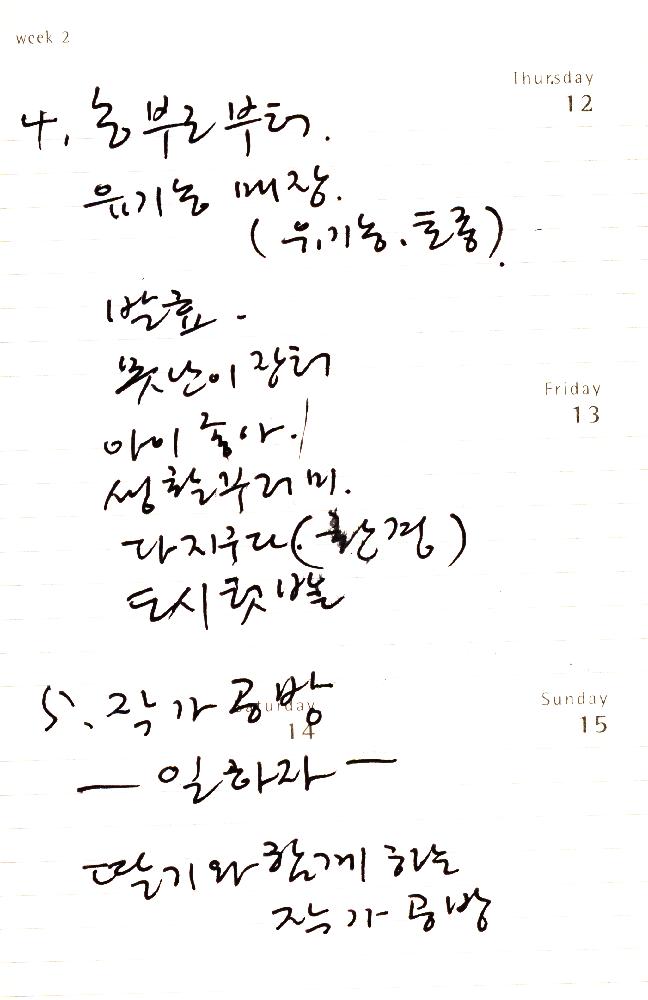 week 2
Thursday
12
4. 농부로부터.
유기농 매장.
(유기농.토종)
발효.
Friday
13
못난이 장터
아이 좋아.
생활꾸러미.
다지구다(환경)
도시텃밭
Saturday
14
Sunday
15
5). 작가공방
— 일하자 —
딸기와 함께 하는
작가 공방